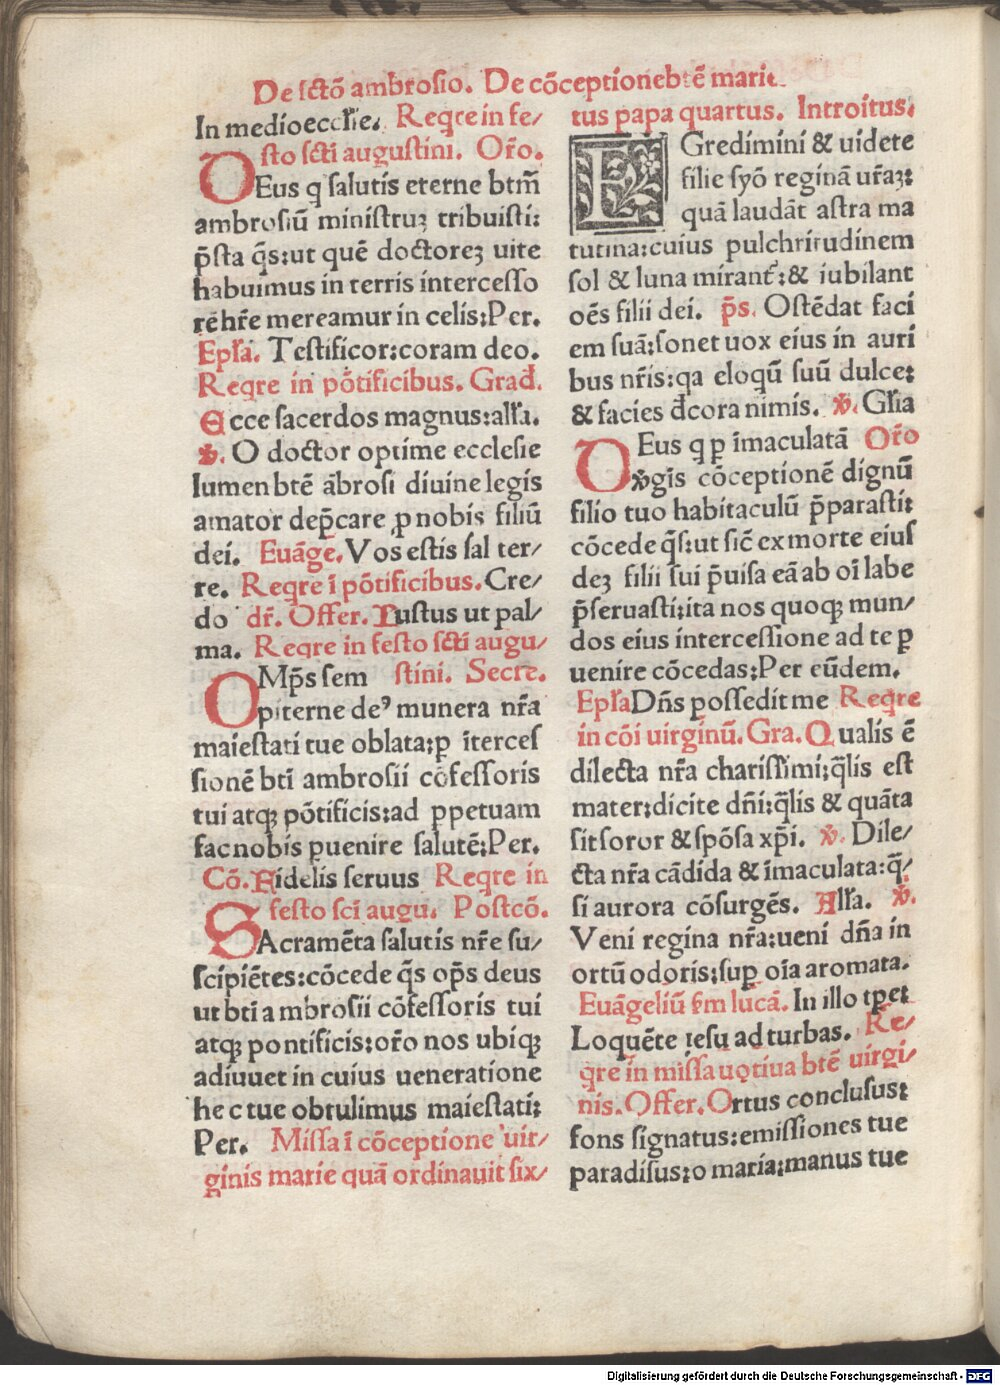 De sctō ambrosio. De cōceptione btē marie
In medio eccłie. Reqre in fe/
sto scti augustini. Oro.
OEus q salutis eterne btm̄
ambrosiū ministruꝫ tribuisti:
p̄sta q̄s:ut quē doctoreꝫ uite
habuimus in terris intercesso
rē hr̄e mereamur in celis:Per.
Epła. Testificor:coram deo.
Reqre in pōtificibus. Grad.
Ecce sacerdos magnus:alła.
℣. O doctor optime ecclesie
lumen btē ābrosi diuine legis
amator dep̄care ꝓ nobis filiū
dei. Euāge. Vos estis sal ter/
re. Reqre ī pōtificibus. Cre/
do dr̄. Offer. Iustus ut pal/
ma. Reqre in festo scti augu/
stini. Secre.
OMp̄s sem
piterne deꝰ munera nr̄a
maiestati tue oblata:ꝑ īterces
sionē bti ambrosii cōfessoris
tui atqꝫ pōtificis:ad ꝑpetuam
fac nobis ꝑuenire salutē:Per.
Cō. Fidelis seruus Reqre in
festo sci augu. Postcō.
SAcramēta salutis nr̄e su/
scipiētes:cōcede q̄s op̄s deus
ut bti ambrosii cōfessoris tui
atqꝫ pontificis:oro nos ubiqꝫ
adiuuet in cuius ueneratione
hec tue obtulimus maiestati:
Per. Missa ī cōceptione uir/
ginis marie quā ordinauit six/
tus papa quartus. Introitus.
EGredimini & uidete
filie syō reginā ur̄aꝫ:
quā laudāt astra ma
tutina:cuius pulchritudinem
sol & luna mirant̄:& iubilant
oēs filii dei. p̄s. Ostēdat faci
em suā:sonet uox eius in auri
bus nr̄is:qa eloqū suū dulce:
& facies decora nimis. ℣. Głia
DEus q ꝑ īmaculatā Oro
v̄gīs cōceptionē dignū
filio tuo habitaculū p̄parasti:
cōcede q̄s:ut sic̄ ex morte eius
deꝫ filii sui p̄uisa eā ab oī labe
p̄seruasti:ita nos quoqꝫ mun/
dos eius intercessione ad te ꝑ
uenire cōcedas:Per eūdem.
EpłaDn̄s possedit me Reqre
in cōi uirginū. Gra. Qualis ē
dilecta nr̄a charissimi:q̄lis est
mater:dicite dn̄i:q̄lis & quāta
sit soror & spōsa xp̄i. ℣. Dile/
cta nr̄a cādida & īmaculata:q̄/
si aurora cōsurgēs. Ałła. ℣.
Veni regina nr̄a:ueni dn̄a in
ortū odoris:suꝑ oīa aromata.
Euāgeliū ẜm lucā. In illo tp̄e:
Loquēte iesu ad turbas. Re/
qre in missa uotiua btē uirgi/
nis. Offer. Ortus conclusus:
fons signatus:emissiones tue
paradisus:o maria:manus tue
Digitalisierung gefördert durch die Deutsche Forschungsgemeinschaft - DFG